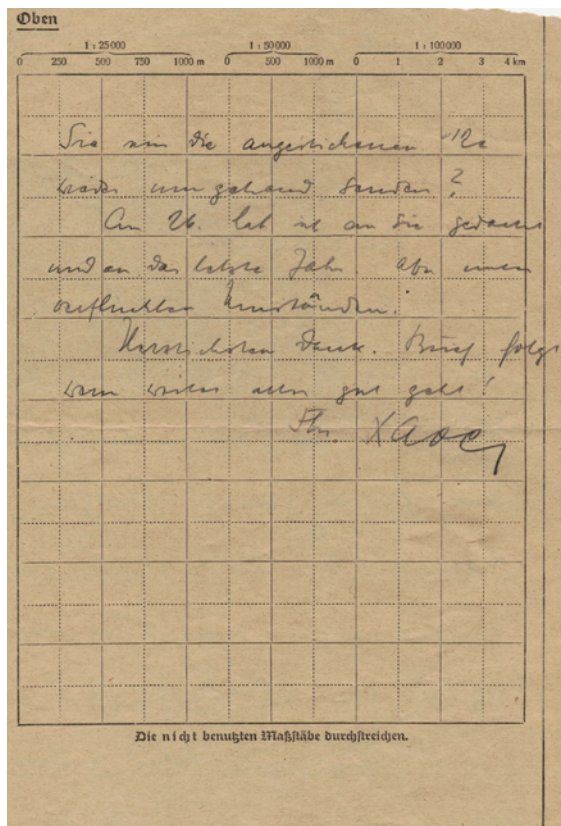 Oben
1 : 25000 1 : 50000 1 : 100000
0 250 500 750 1000 m 0 500 1000 m 0 1 2 3 4 km
Sie mir die angestrichenen
wieder umgehend senden?
Am 26. hab ich an Sie gedacht
und an das letzte Jahr. Aber unter
verfluchten Umständen.
Herzlichsten Dank. Brief folgt
wenn weiter alles gut geht!
Ihr
Die nicht benutzten Maßstäbe durchstreichen.